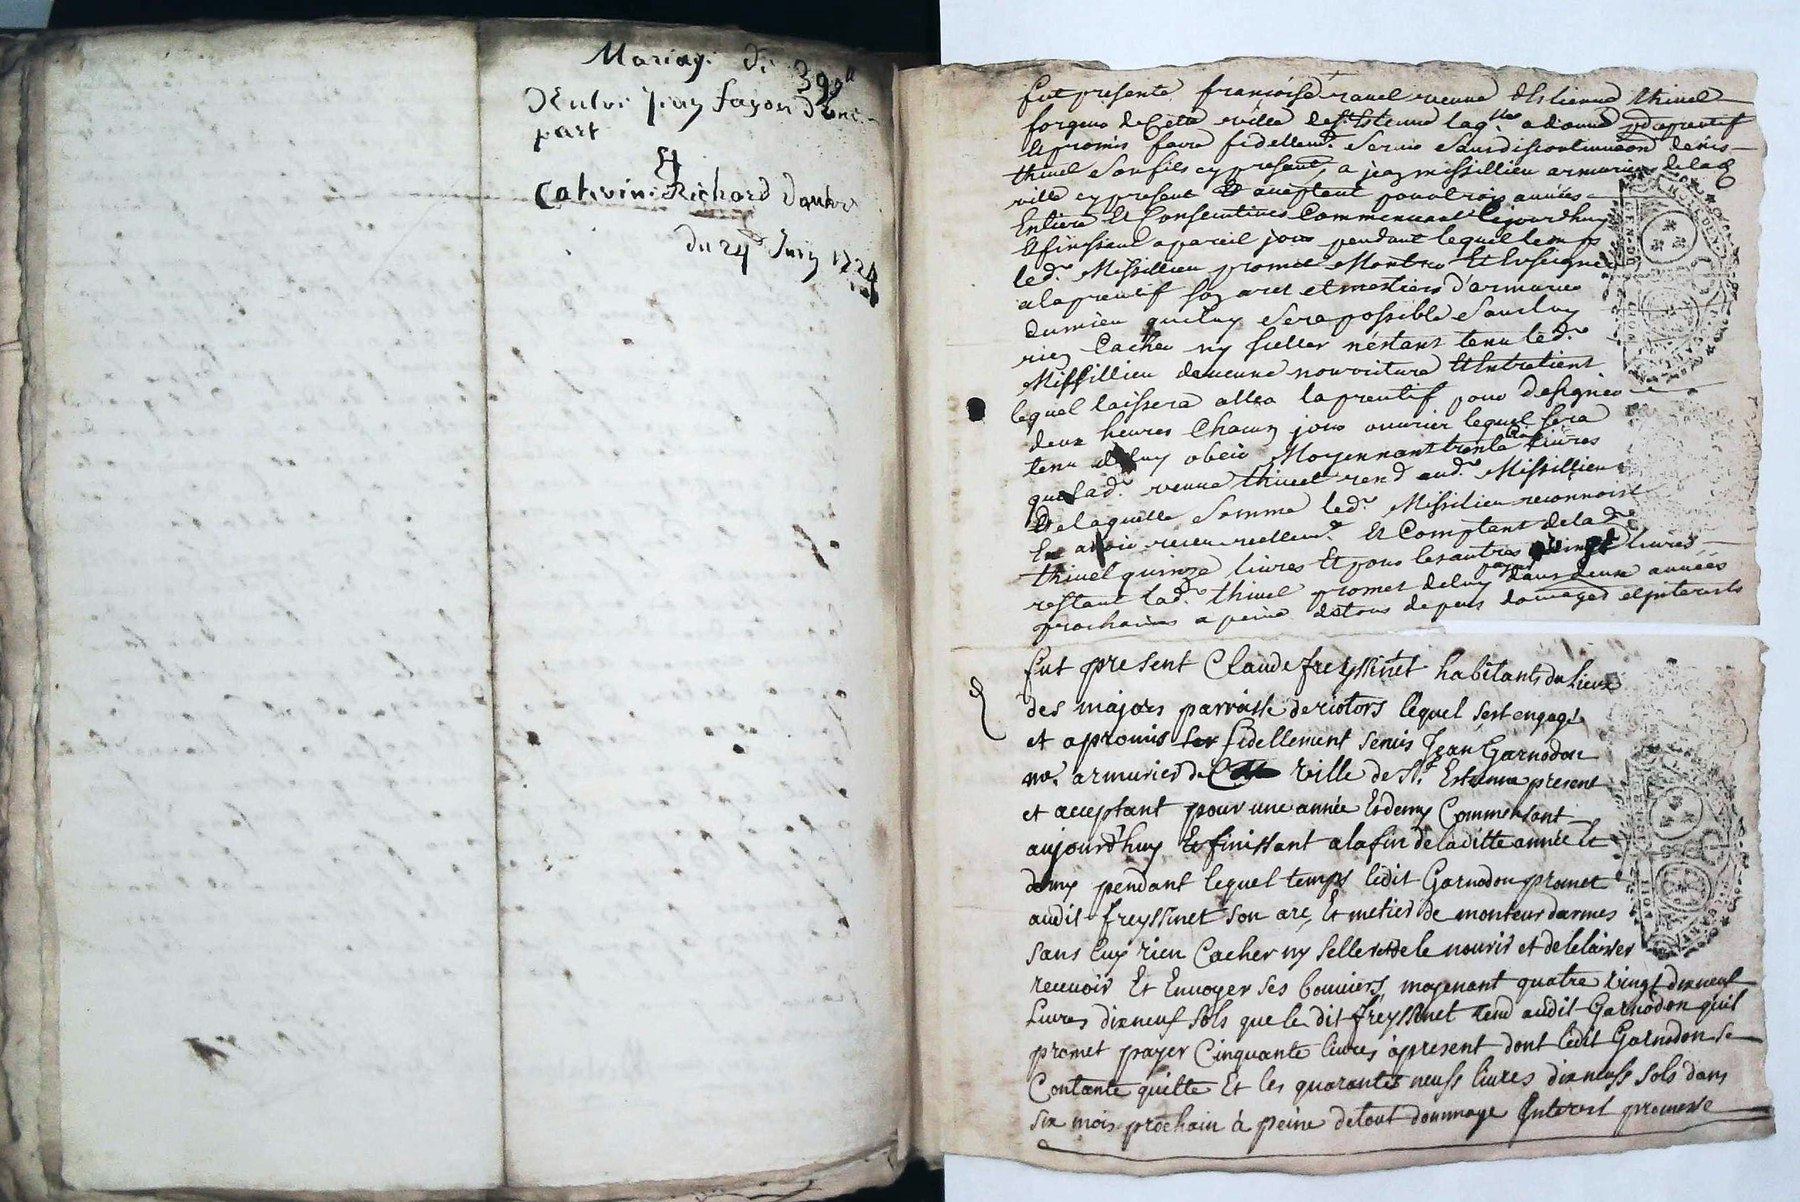 Mariage de 399ᵗ
D'Entre Jean fayon d'une
part
Et
Catherine Richard d'autre
du 24 Juin 1724
fut presente francoise ravel veuve d'Estienne thivel
forgeur de Cette ville de St. Estienne laq.lle a donné pr aprentif
Et promis faire fidellemt. servir sans discontinuaon denis
thivel son fils cy present, a jean missillieu armurier de lad
ville cy present Et aceptant pour trois années
Entiere Et Consecutives Commencant Cejourdhuy
Et finissant a pareil jour pendant lequel temps
led. Missillieu promet Montrer Et Enseigner
a laprentif son aret et mestiers d'armurier
du mieu quiluy sera possible sans luy
rien Cacher ny seller n'estant tenu led.
Missillieu daucune nourriture Et Entretient
lequel laissera aller laprentif pour designer
deux heures Chacun jour ouvrier lequel sera
tenu de luy obeir Moyennant trente Cinq livres
que lad. veuve thivel rend aud. Missillieu
de laquelle somme led. Missilieu reconnoist
En avoir receu reellemt. Et Comptant de lad.
thivel quinze livres Et pour les autres vingt livres
restant lad. thivel promet de luy payer dans deux années
prochaines a peine de tous depens domages et interests
fut present Claude freyssinet habitant du Lieux
des majors parroisse de riotors lequel s'est engagé
et apromis fidellement servir Jean Garnodon
me. armurier de Cette ville de St. Estienne present
et acceptant pour une année Et demy Commensant
aujourd'huy Et finissant a la fin de la ditte année Et
demy pendant lequel temps ledit Garnodon promet
audit freyssinet son art Et metier de monteur darmes
sans luy rien Cacher ny seller de le nourir et de le laisser
recevoir Et Envoyer ses bouviers, moyenant quatre vingt dixneuf
Livres dixneuf sols que le dit freyssinet rend audit Garnodon quil
promet payer Cinquante livres apresent dont ledit Garnodon se
Contante quitte Et les quarante neuf livres dixneufs sols dans
six mois prochain à peine de tout dommage Interest promesse